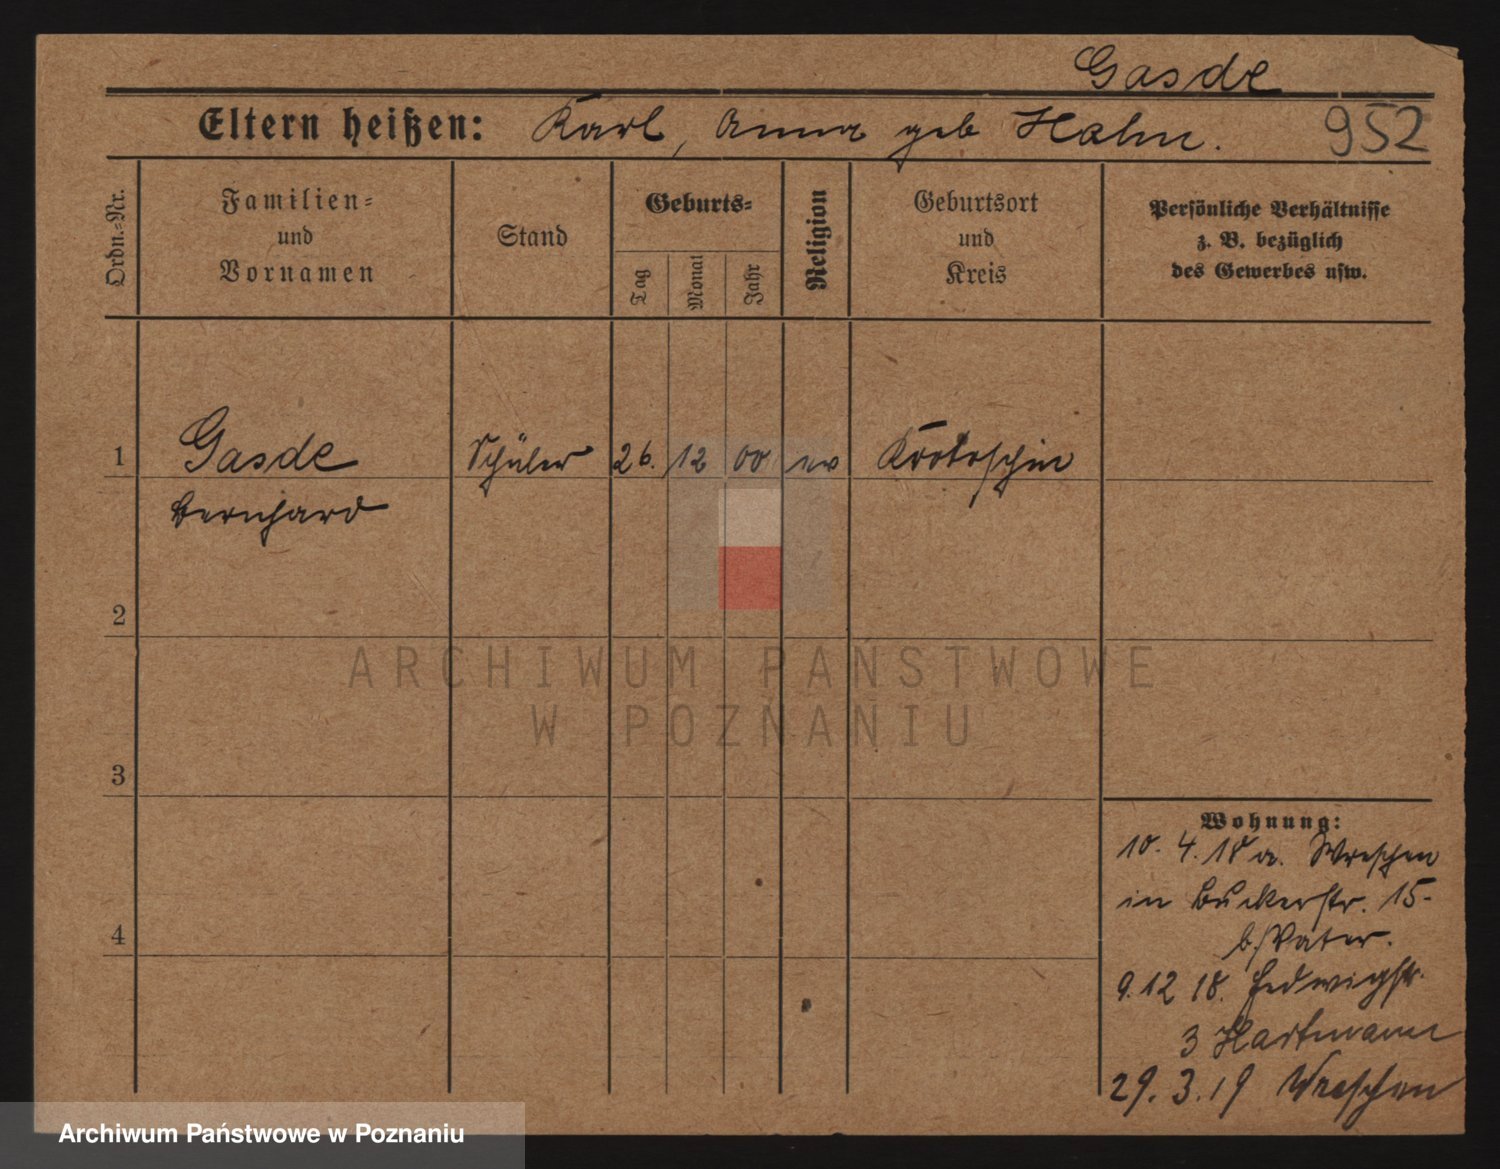 Gasde
Eltern heißen: Karl, Anna geb Hahn.
952
Ordn.=Nr.
Familien=
und
Vornamen
Stand
Geburts=
Tag
Monat
Jahr
Religion
Geburtsort
und
Kreis
Persönliche Verhältnisse
z. B. bezüglich
des Gewerbes usw.
1 Gasde Schüler 26. 12 00 ev Krotoschin
Bernhard
2
3
4
Wohnung:
10. 4. 18 a. Wreschen
in Bukerstr. 15-
b/Vater.
9. 12 18. Hedwigstr.
3 Hartmann
29. 3. 19 Wreschen
ARCHIWUM PAŃSTWOWE
W POZNANIU
Archiwum Państwowe w Poznaniu